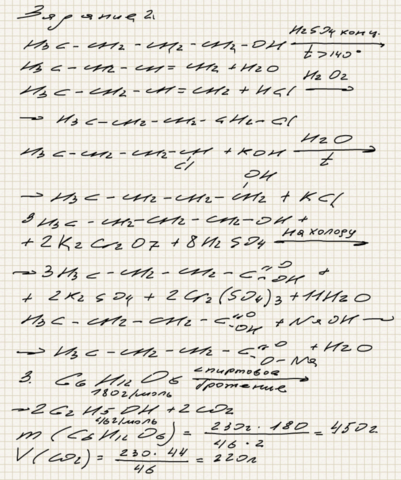 Задание 2.
H3C-CH2-CH2-CH2-OH H2SO4 конц. t>140°
H3C-CH2-CH=CH2+H2O
H3C-CH2-CH=CH2+HCl H2O2
→ H3C-CH2-CH2-CH2-Cl
H3C-CH2-CH2-CH + KOH H2O t
Cl
OH
→ H3C-CH2-CH2-CH2 + KCl
3H3C-CH2-CH2-CH2-OH+
+ 2K2Cr2O7 + 8H2SO4 на холоду
→ 3H3C-CH2-CH2-C=O OH +
+ 2K2SO4 + 2Cr2(SO4)3 + 11H2O
H3C-CH2-CH2-C=O OH + NaOH →
→ H3C-CH2-CH2-C=O O-Na + H2O
3. C6H12O6 спиртовое брожение
180г/моль
→ 2C2H5OH + 2CO2
46г/моль
m(C6H12O6) = 230г·180 / 46·2 = 450г
V(CO2) = 230·44 / 46 = 220л